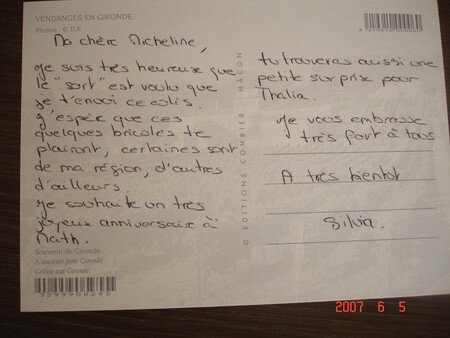 VENDANGES EN GIRONDE
Photos : O D.R.
Ma chère Micheline,
Je suis très heureuse que
le "sort" est voulu que
je t'envoi ce colis.
J'espère que ces
quelques bricoles te
plairont, certaines sont
de ma région, d'autres
d'ailleurs.
Je souhaite un très
joyeux anniversaire à
Nath.
Souvenir de Gironde
A souvenir from Gironde
Grüsse aus Gironde
3399900295
© EDITIONS COMBIER - MACON
tu trouveras aussi une
petite surprise pour
Thalia.
Je vous embrasse
très fort à tous
A très bientot
Silvia.
2007 6 5